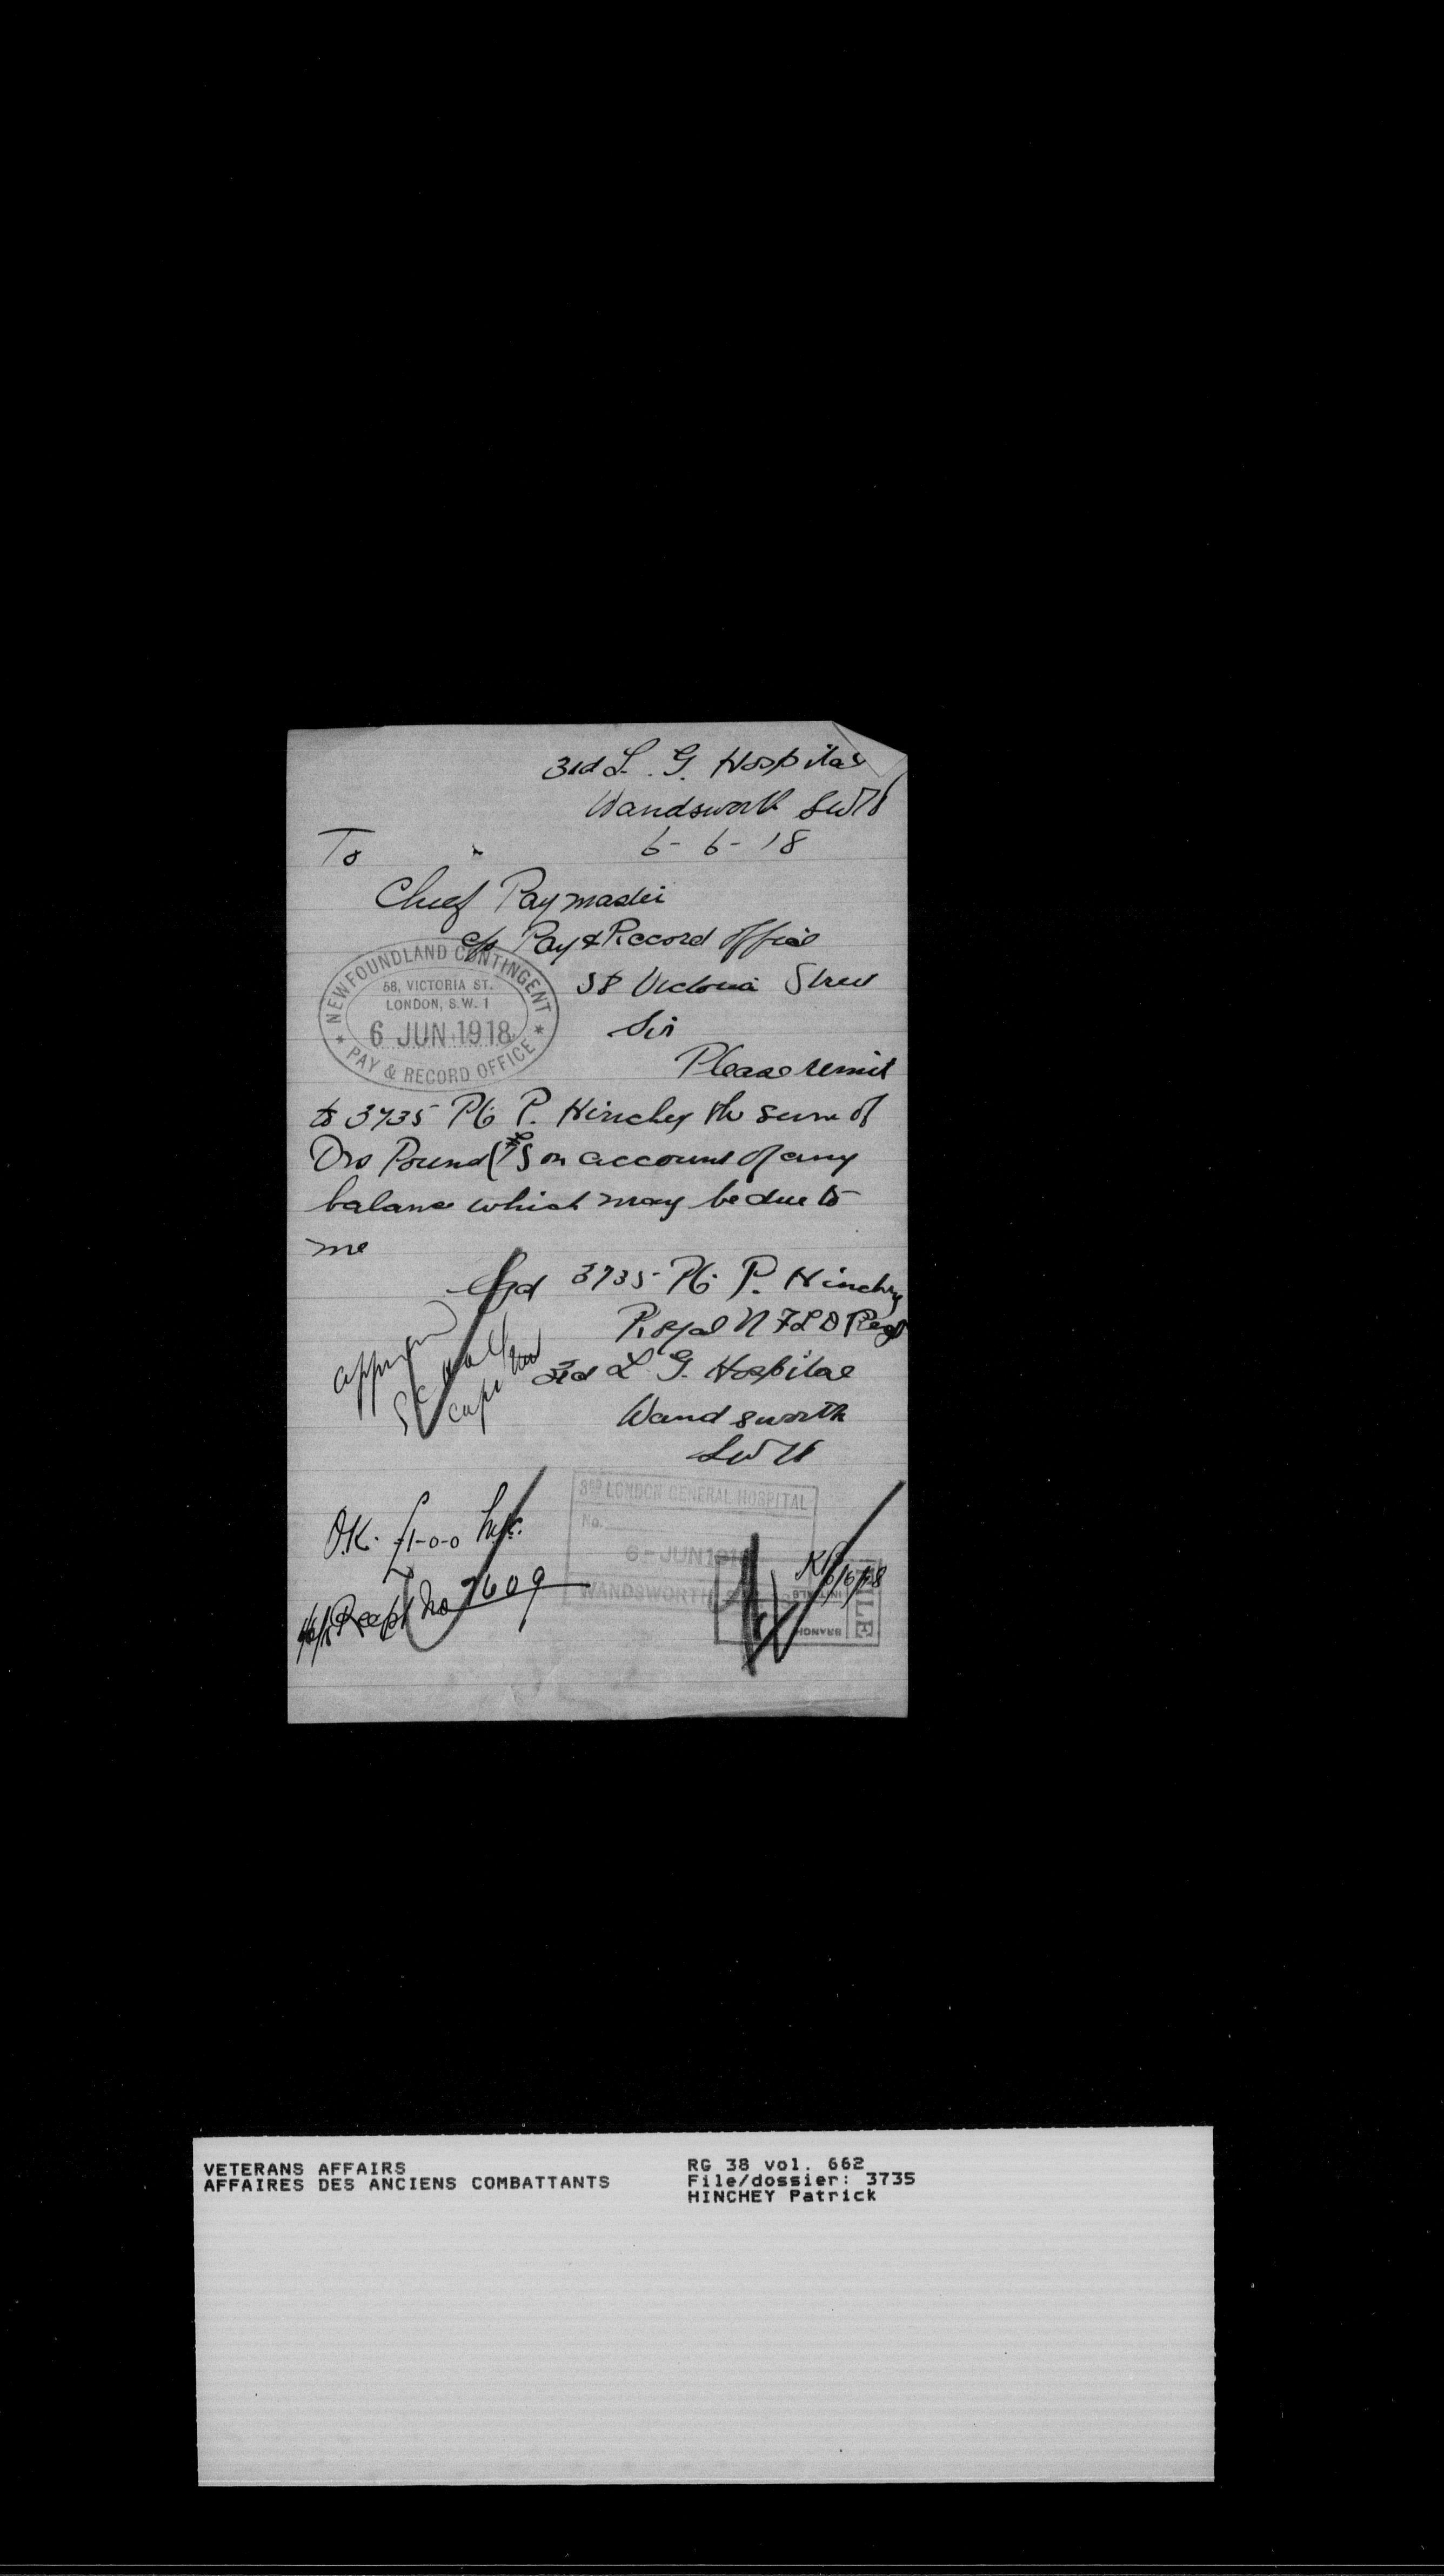 3rd L. G. Hospital
Wandsworth SW18
6-6-18
To
Chief Paymaster
c/o Pay & Record Office
58 Victoria Street
NEWFOUNDLAND CONTINGENT
58, VICTORIA ST.
LONDON, S.W. 1
6 JUN 1918
* PAY & RECORD OFFICE *
Sir
Please remit
to 3735 Pte P. Hinchey the sum of
One Pound (£1) on account of any
balance which may be due to
me
Sgd 3735 Pte P. Hinchey
Royal NFLD Regt
3rd L. G. Hospital
Wandsworth
SW18
Capt
3RD LONDON GENERAL HOSPITAL
No.
6 - JUN 191
WANDSWORTH
O.K. £1-0-0
Recpt No 7609
6/6/18
FILE
INITIALS
BRANCH
VETERANS AFFAIRS
AFFAIRES DES ANCIENS COMBATTANTS
RG 38 vol. 662
File/dossier: 3735
HINCHEY Patrick